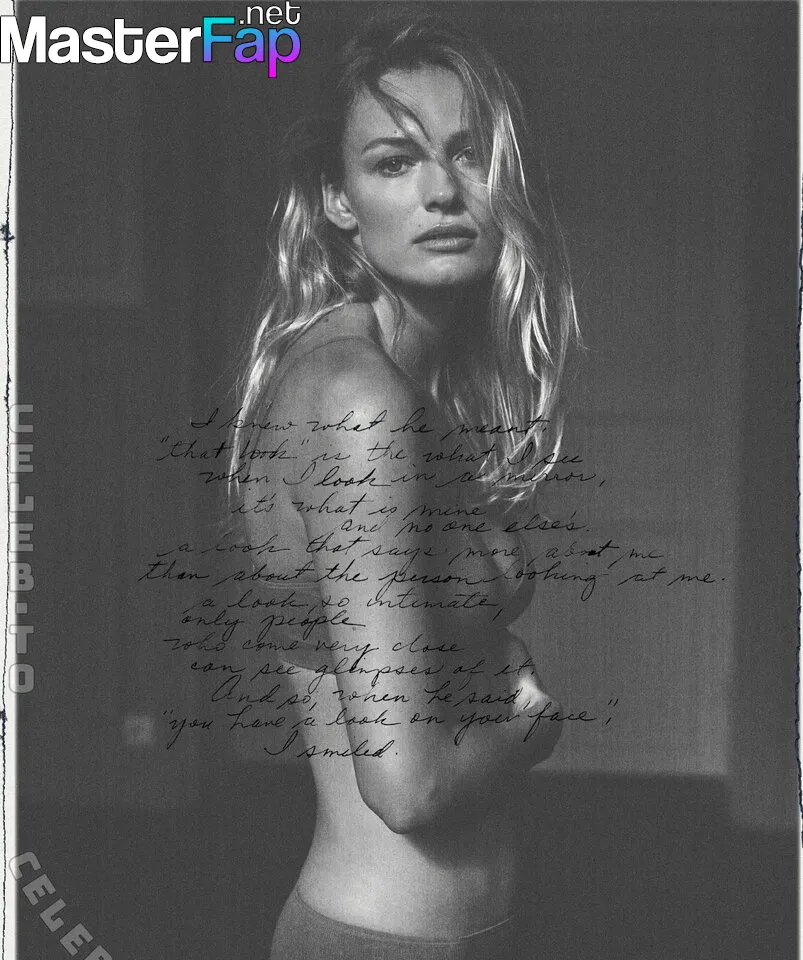 MasterFap
.net
I knew what he meant.
"that look" is the what I see
when I look in a mirror,
it's what is mine
and no one else's.
a look that says more about me
than about the person looking at me.
a look so intimate,
only people
who come very close
can see glimpses of it.
And so, when he said,
"you have a look on your face",
I smiled.
CELEB.TO
CELEB